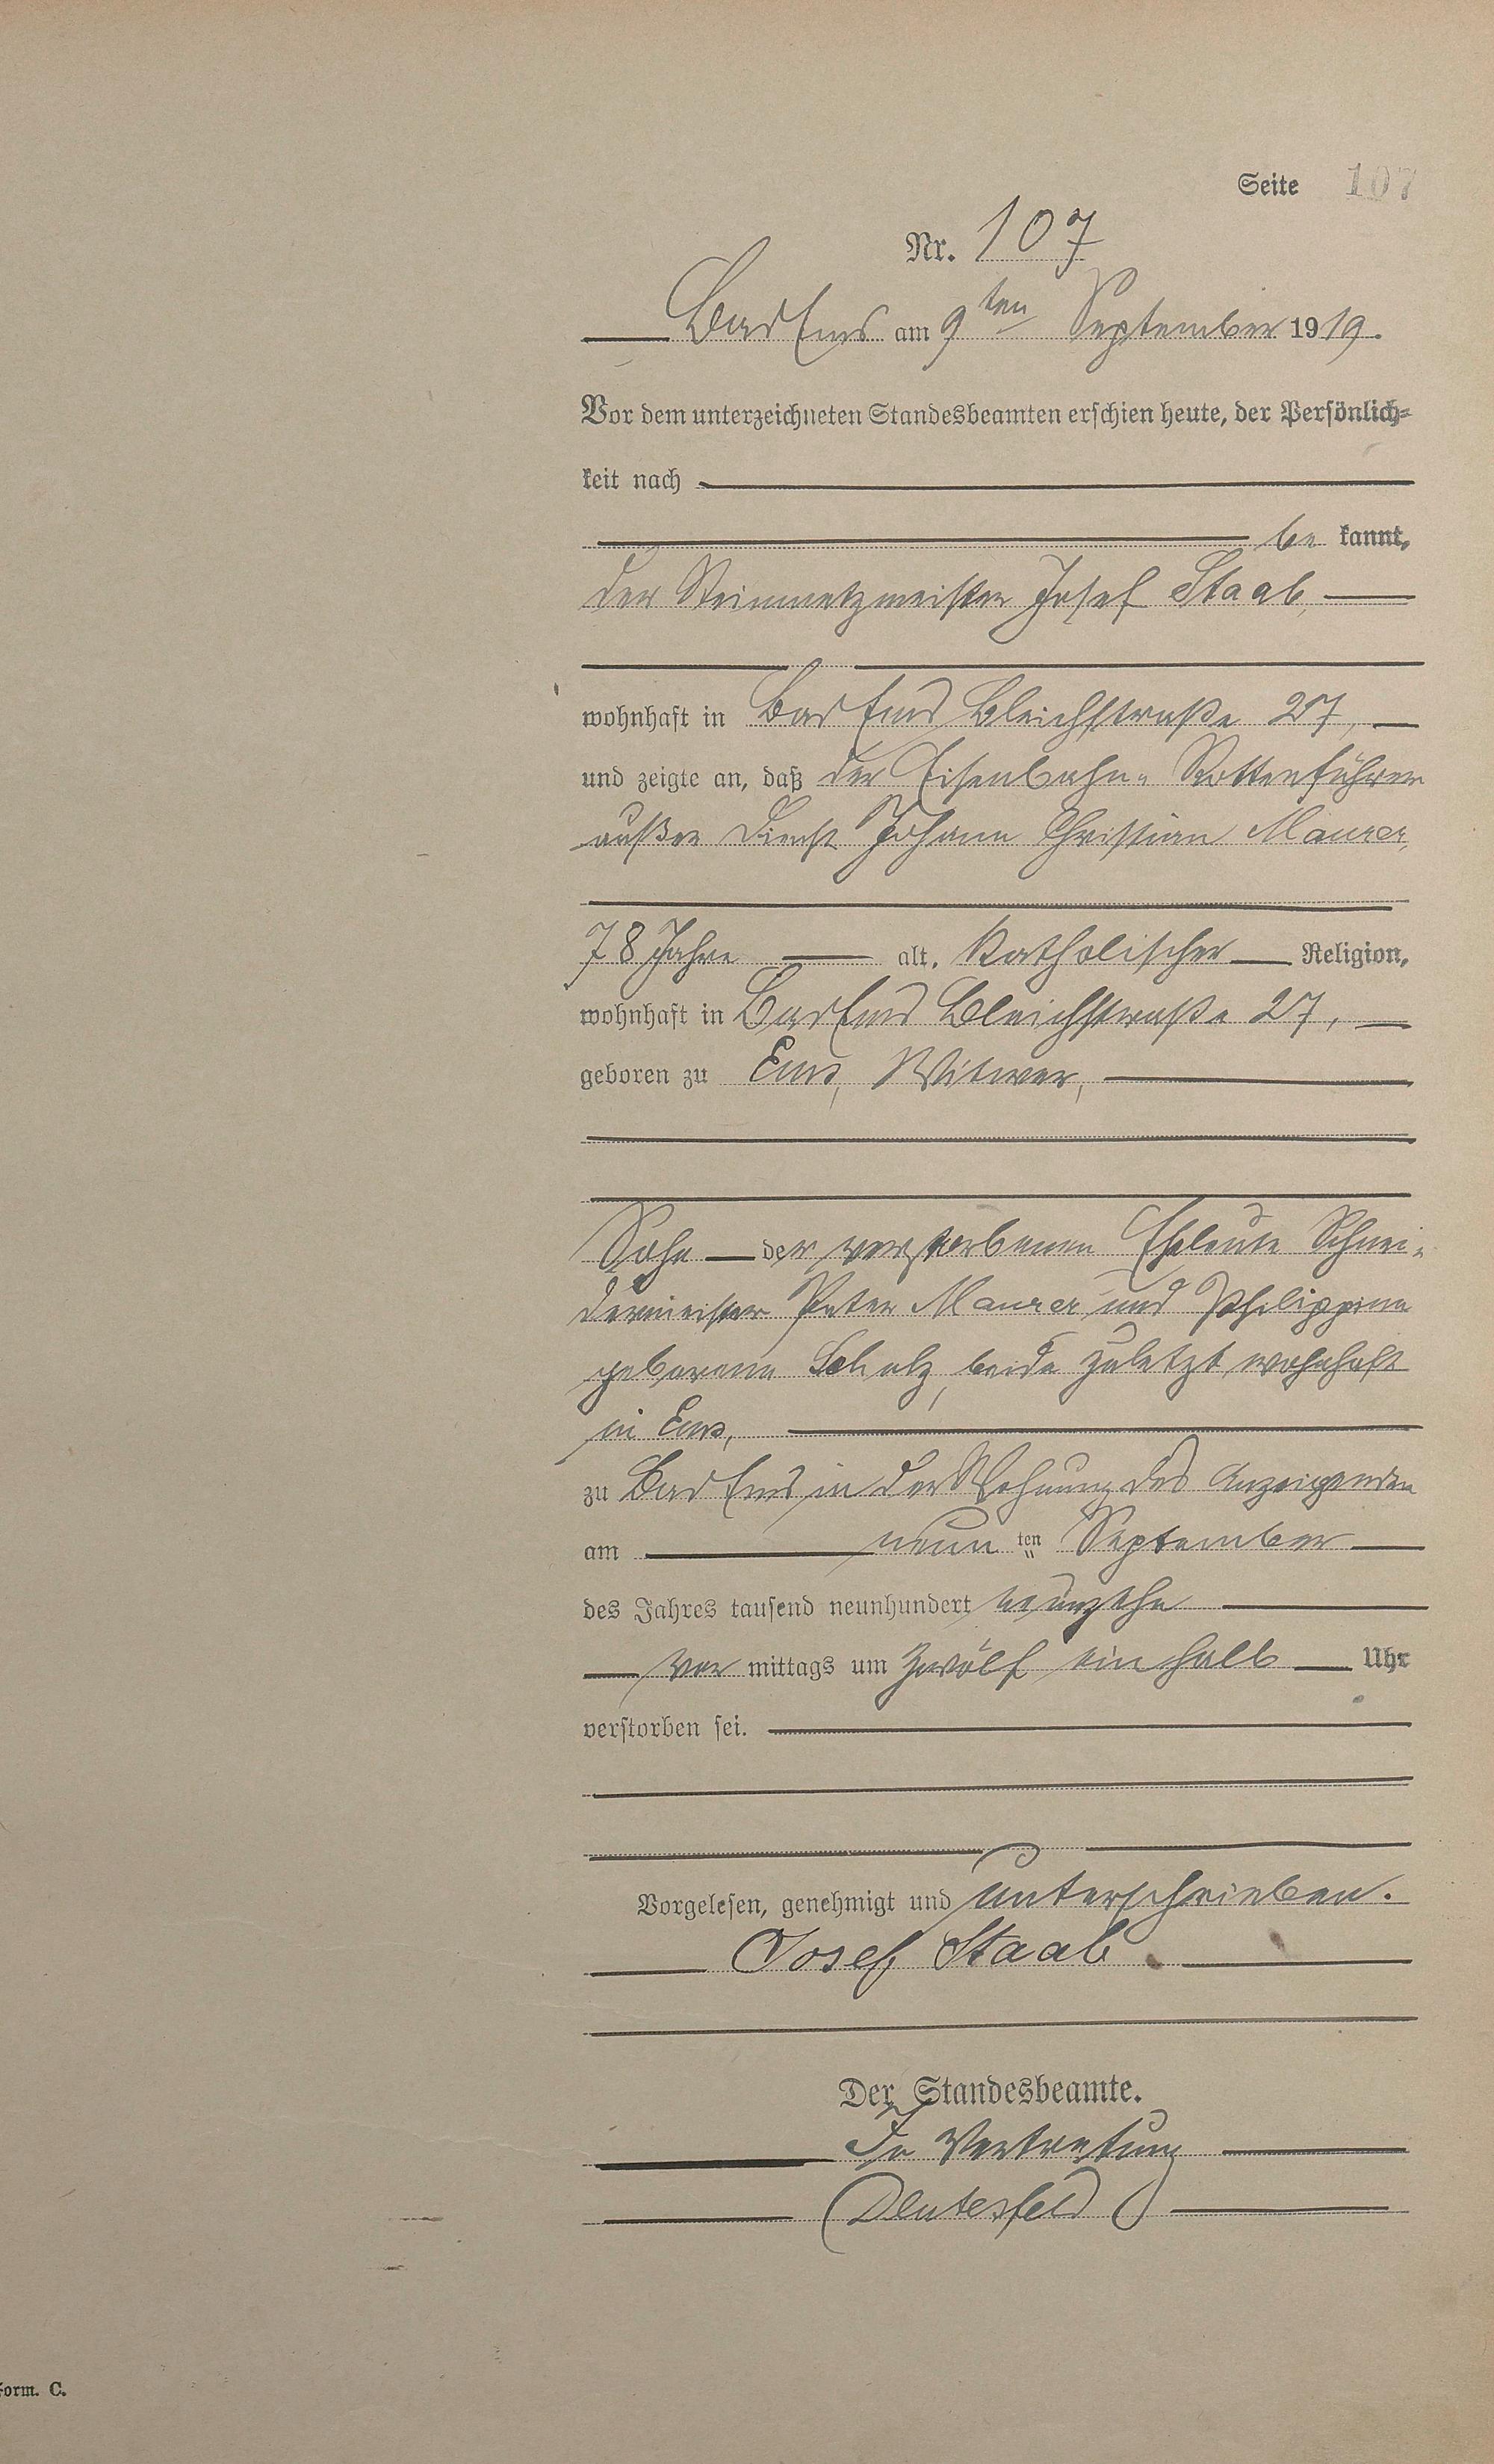 Seite 107
Nr. 107
Bad Ems am 9ten September 1919.
Vor dem unterzeichneten Standesbeamten erschien heute, der Persönlich-
keit nach
be kannt,
der Steinmetzmeister Josef Staab,
wohnhaft in Bad Ems Bleichstraße 27,
und zeigte an, daß der Eisenbahn- Rottenführer
außer Dienst Johann Christian Maurer,
78 Jahre alt, Katholischer Religion,
wohnhaft in Bad Ems Bleichstraße 27,
geboren zu Ems, Witwer,
Sohn der verstorbenen Eheleute Schnei-
dermeister Peter Maurer und Philippine
geborene Scholz, beide zuletzt wohnhaft
in Ems,
zu Bad Ems in der Wohnung des Anzeigenden
am neun ten September
des Jahres tausend neunhundert neunzehn
vor mittags um zwölf einhalb Uhr
verstorben sei.
Vorgelesen, genehmigt und unterschrieben.
Josef Staab.
Der Standesbeamte.
In Vertretung
Form. C.